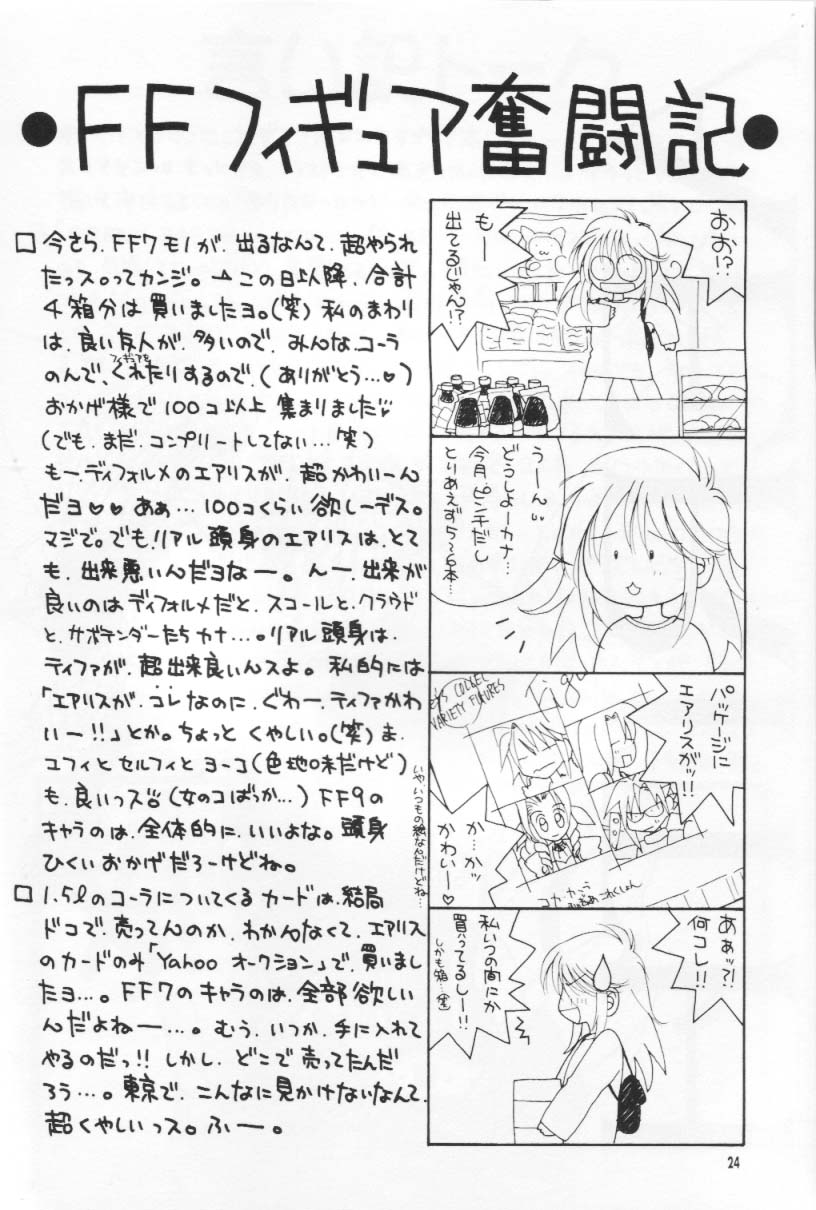 ●FFフィギュア奮闘記●
おお!?
もー
出てるじゃん!?
うーん
どうしよーカナ…
今月ピンチだし
とりあえず5~6本…
COLA
VARIETY FIGURES
パッケージに
エアリスがッ!!
か…かッ
かわいー♡
いや、いつもの絵なんだけどね…
コカ・カッラ
ふぃぎゅあ これくしょん
あぁッ?!
何コレ!!
私いつの間にか
買ってるしー!!
しかも箱…(笑)
□今さら、FF7モノが、出るなんて、超やられ
たっス。ってカンジ。→この日以降、合計
4箱分は買いましたヨ。(笑)私のまわり
は、良い友人が、多いので、みんな、コーラ
のんで、フィギュアをくれたりするので、(ありがとう…♡)
おかげ様で100コ以上集まりました
(でも、まだ、コンプリートしてない…笑)
もー、ディフォルメのエアリスが、超かわいーん
だヨ♡♡ あぁ…100コくらい欲しーデス。
マジで。でも、リアル頭身のエアリスは、とて
も、出来悪いんだヨなー。んー、出来が
良いのはディフォルメだと、スコールと、クラウド
と、サボテンダーたちカナ…。リアル頭身は、
ティファが、超出来良いんスよ。私的には
「エアリスが、コレなのに、ぐわー、ティファかわ
いー!!」とか。ちょっとくやしい。(笑)ま、
ユフィとセルフィとヨーコ(色地味だけど)
も、良いっス(女のコばっか…)FF9の
キャラのは、全体的に、いいよな。頭身
ひくいおかげだろーけどね。
□1.5ℓのコーラについてくるカードは、結局
ドコで、売ってんのか、わかんなくて、エアリス
のカードのみ「Yahooオークション」で、買いまし
たヨ…。FF7のキャラのは、全部欲しい
んだよねー…。むう、いつか、手に入れて
やるのだっ!!しかし、どこで売ってたんだ
ろう…。東京で、こんなに見かけないなんて、
超くやしいっス。ふー。
24